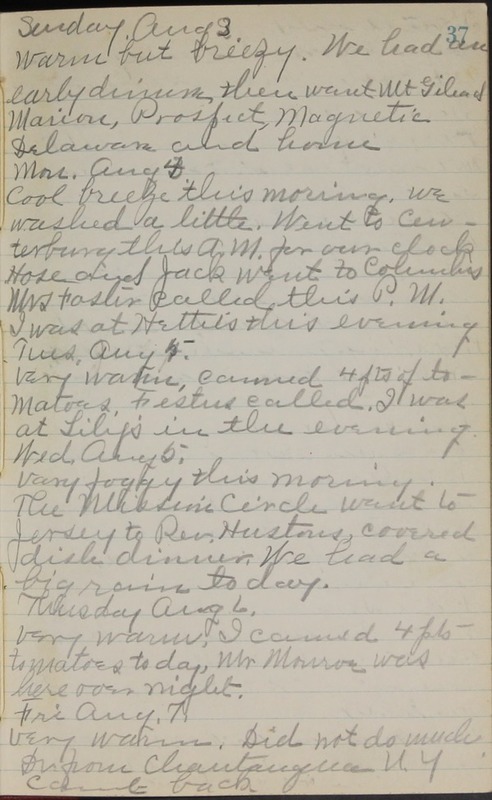 Sunday, Aug 3
37
Warm but breezy. We had an
early dinner, then want Mt Gilead
Marion, Prospect, Magnetic
Delaware and home
Mon. Aug 4
Cool breeze this moring. We
washed a little. Went to Cen-
terburg this A.M. for our clock
Hose and Jack went to Columbus
Mrs Foster called this P. M.
I was at Hettie's this evening
Tues, Aug 5.
Very warm, canned 4 pts of to-
matoes, Festus called. I was
at Lily's in the evening.
Wed, Aug 5.
Very foggy this moring.
The Mission Circle want to
Jersey to Rev. Hustons, covered
dish dinner. We had a
big rain to day.
Thusday Aug 6.
Very warm. I canned 4 pts
tomatoes to day, Mr Monroe was
here over night.
Fri Aug. 7.
Very warm. Did not do much
from Chautauqua N.Y
came back